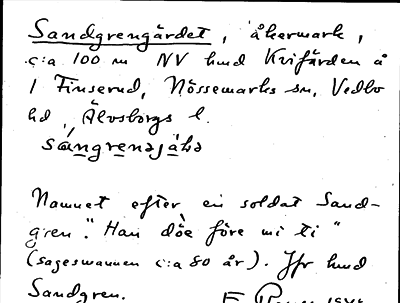 Sandgrengärdet, åkermark,
c:a 100 m NV hmd Krifärden å
1 Finserud, Nössemarks sn, Vedbo
hd, Älvsborgs l.
sáŋgrenəsjäƚə

Namnet efter en soldat Sand-
gren. "Han döe före mi ti"
(sageswannen c:a 80 år). Jfr hmd
Sandgren.